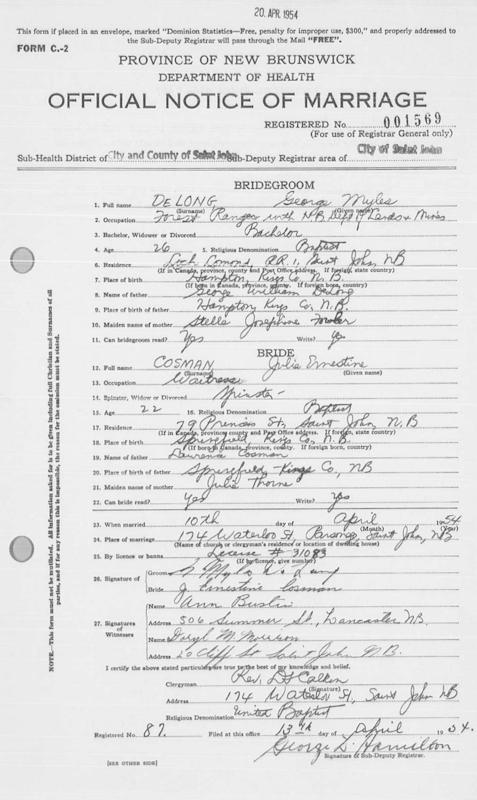 20. APR. 1954
This form if placed in an envelope, marked "Dominion Statistics—Free, penalty for improper use, $300," and properly addressed
to the Sub-Deputy Registrar will pass through the Mail "FREE".
FORM C.-2
PROVINCE OF NEW BRUNSWICK
DEPARTMENT OF HEALTH
OFFICIAL NOTICE OF MARRIAGE
REGISTERED No. 001569
(For use of Registrar General only)
Sub-Health District of City and County of Saint John Sub-Deputy Registrar area of City of Saint John
BRIDEGROOM
1. Full name DeLONG George Myles
(Surname) (Given name)
2. Occupation Forest Ranger with N.B. Dept of Lands & Mines
3. Bachelor, Widower or Divorced Bachelor
4. Age 26 5. Religious Denomination Baptist
6. Residence Loch Lomond, RR. 1, Saint John, NB
(If in Canada, province, county and Post Office address. If foreign, state country)
7. Place of birth Hampton, Kings Co. N.B.
(If born in Canada, province, county. If foreign born, country)
8. Name of father George William DeLong
9. Place of birth of father Hampton, Kings Co. N.B.
10. Maiden name of mother Stella Josephine Fowler
11. Can bridegroom read? Yes Write? Yes
BRIDE
12. Full name COSMAN Julia Ernestine
(Surname) (Given name)
13. Occupation Waitress
14. Spinster, Widow or Divorced Spinster
15. Age 22 16. Religious Denomination Baptist
17. Residence 79 Princess St., Saint John, N.B
(If in Canada, province, county and Post Office address. If foreign, state country)
18. Place of birth Springfield, Kings Co., N.B.
(If born in Canada, province, county. If foreign born, country)
19. Name of father Laurence Cosman
20. Place of birth of father Springfield, Kings Co., NB
21. Maiden name of mother Julia Thorne
22. Can bride read? Yes Write? Yes
23. When married 10th day of April 1954
(Month) (Year)
24. Place of marriage 174 Waterloo St. Parsonage, Saint John, NB
(Name of church or clergyman's residence or location of dwelling house)
25. By licence or banns License # 31083
(If by licence, give number)
26. Signature of
Groom G Myles DeLong
Bride J. Ernestine Cosman
27. Signatures of Witnesses
Name Ann Bustin
Address 306 Summer St., Lancaster NB.
Name Daryl M. Morrison
Address 20 Cliff St Saint John N.B.
I certify the above stated particulars are true to the best of my knowledge and belief.
Clergyman Rev.
(Signature)
Address 174 Waterloo St, Saint John NB
Religious Denomination United Baptist
Registered No. 87. Filed at this office 13th day of April 1954.
George D. Hamilton
Signature of Sub-Deputy Registrar.
[SEE OTHER SIDE]
NOTE.—This form must not be mutilated. All information asked for is to be given including full Christian and Surnames of all
parties, and if for any reason this is impossible, the reason for the omission must be stated.